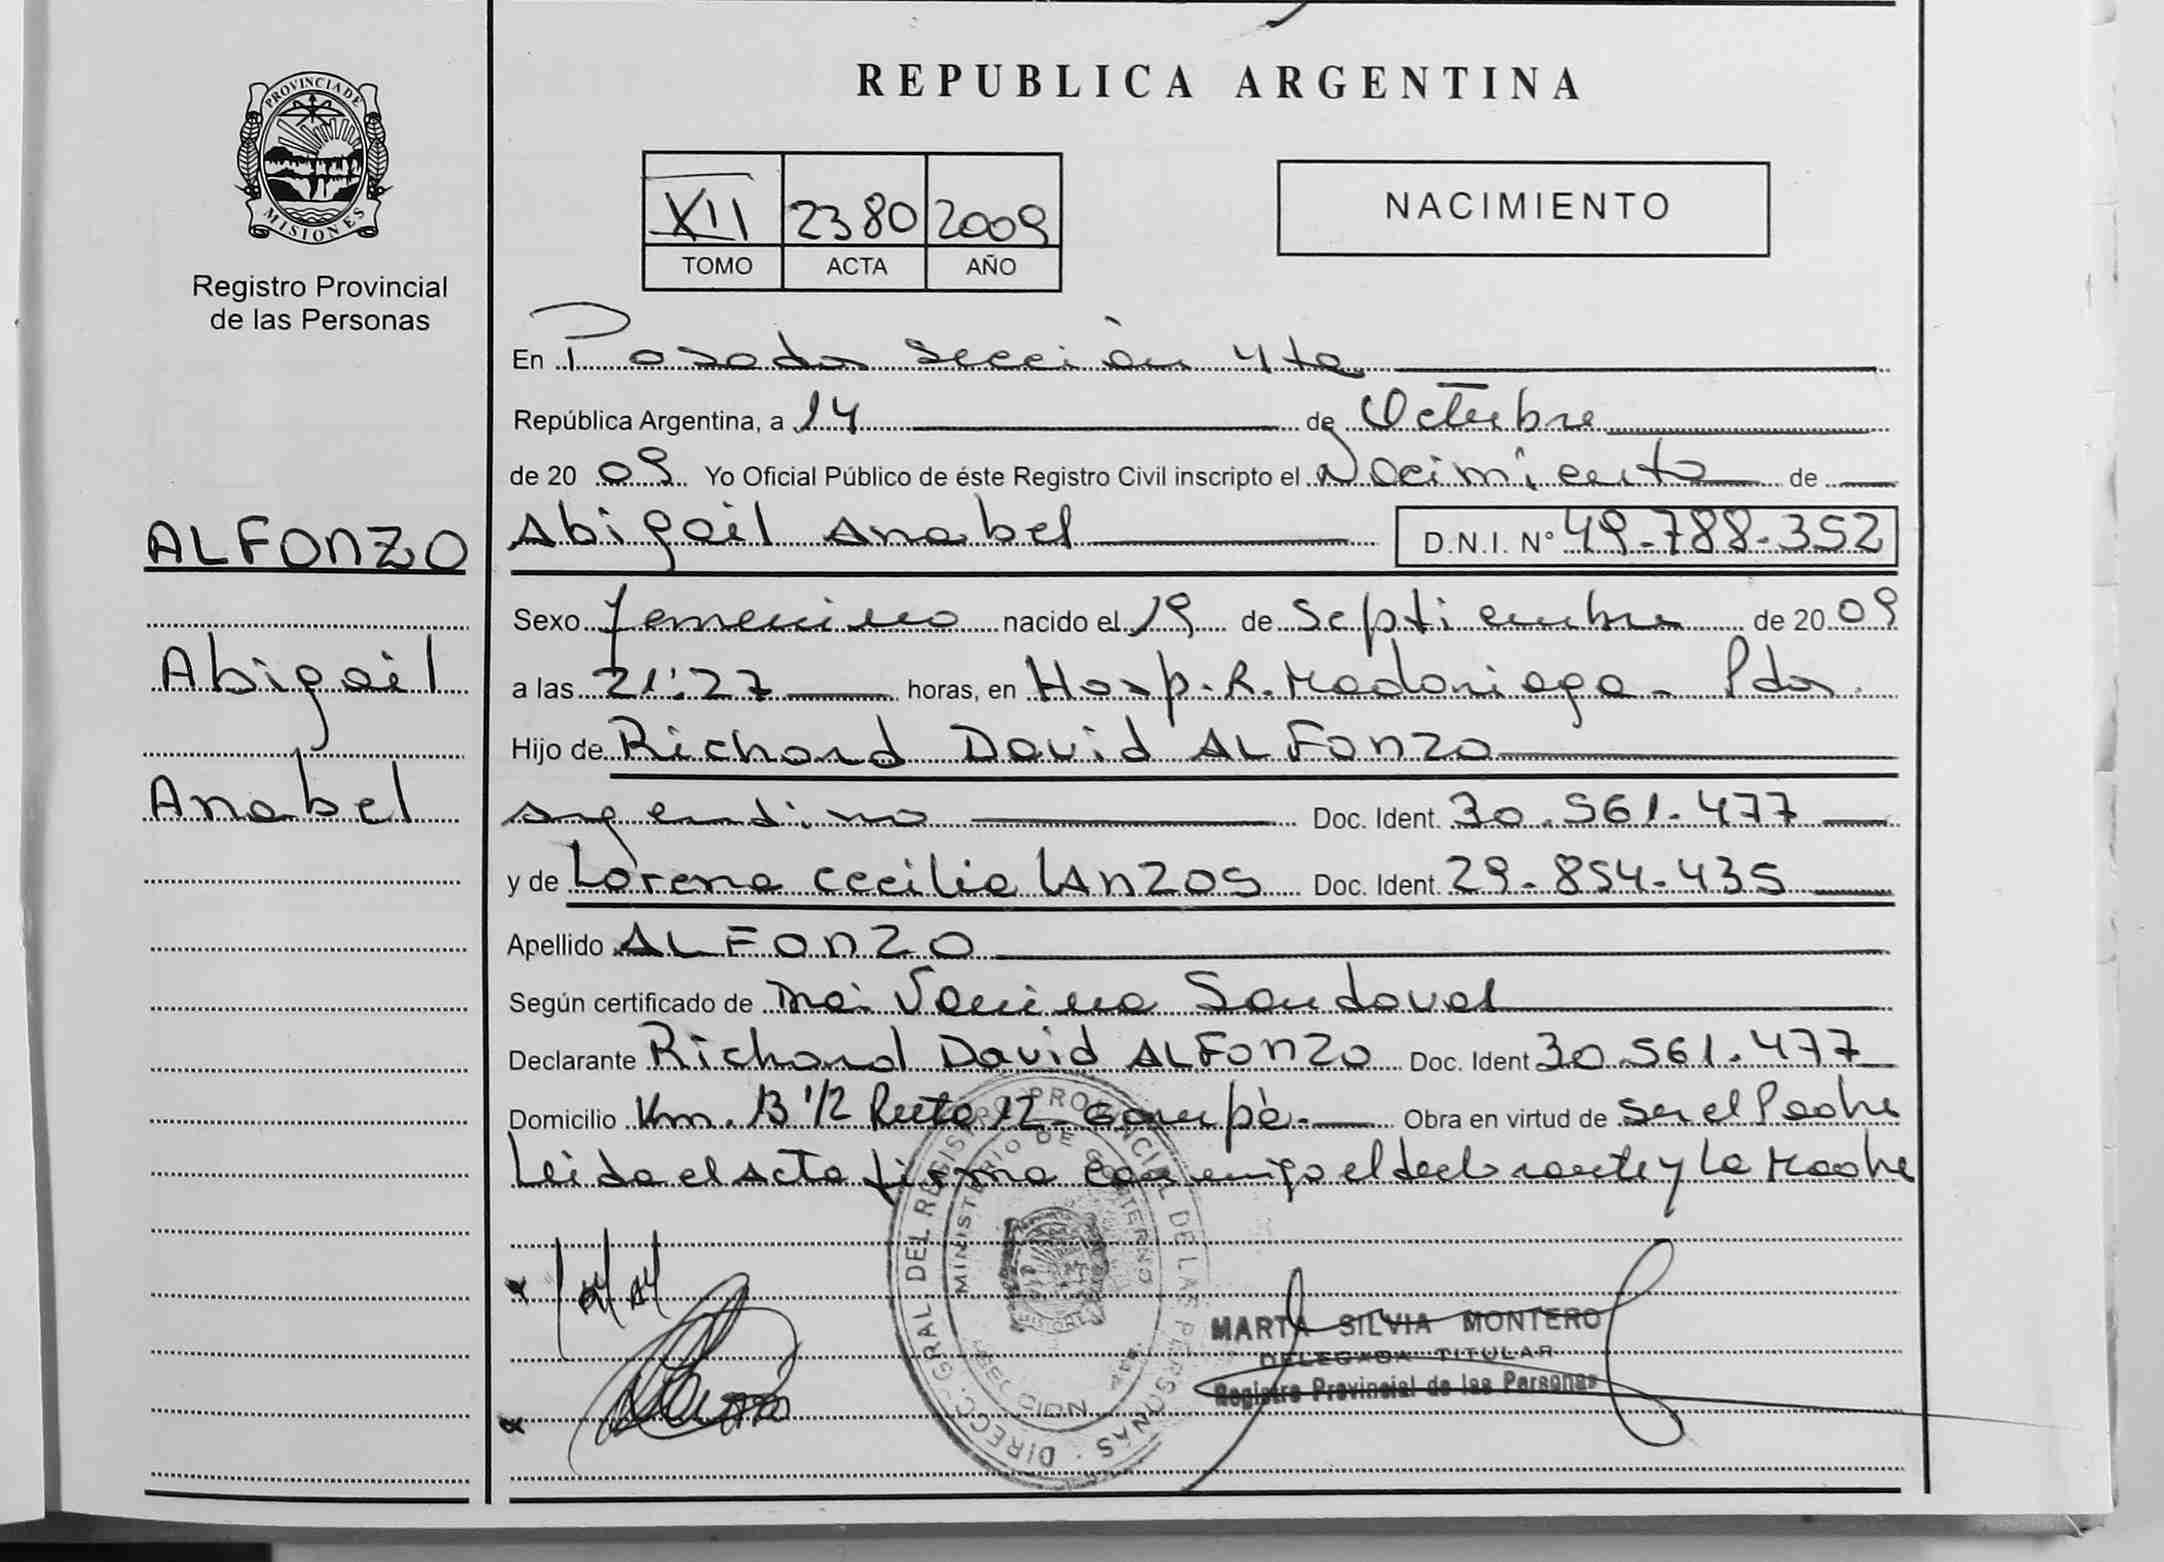 PROVINCIA DE
MISIONES
Registro Provincial
de las Personas
REPUBLICA ARGENTINA
XII 2380 2009
TOMO ACTA AÑO
NACIMIENTO
En Posadas sección 4ta
República Argentina, a 14 de Octubre
de 20 09 Yo Oficial Público de éste Registro Civil inscripto el Nacimiento de
ALFONZO
Abigail
Anabel
Abigail Anabel D.N.I. N° 49.788.352
Sexo femenino nacido el 19 de Septiembre de 20 09
a las 21:27 horas, en Hosp. R. Madariaga - Pdas.
Hijo de Richard David ALFONZO
argentino Doc. Ident. 30.561.477
y de Lorena Cecilia LANZOS Doc. Ident. 29.854.435
Apellido ALFONZO
Según certificado de Ma. Vanina Sandoval
Declarante Richard David ALFONZO Doc. Ident 30.561.477
Domicilio Km. 13 1/2 Ruta 12 - Garupè. Obra en virtud de ser el Padre
Leida el acta firma conmigo el declarante y la Madre
DIRECC. GRAL. DEL REGISTRO PROVINCIAL DE LAS PERSONAS
MINISTERIO DE GOBIERNO
MISIONES
MARTA SILVIA MONTERO
DELEGADA TITULAR
Registro Provincial de las Personas